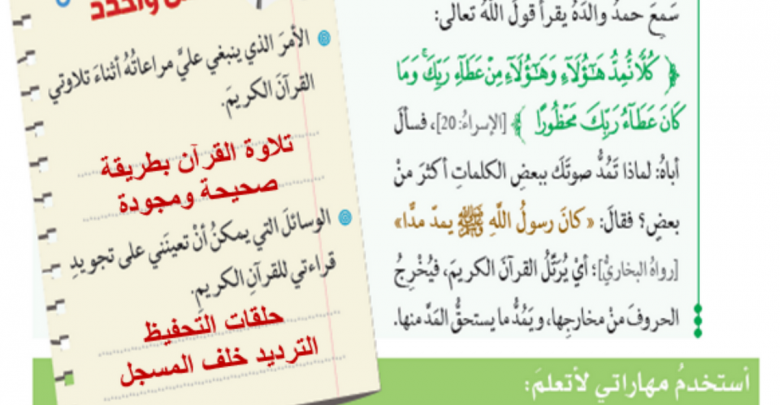 سَمِعَ حمدٌ والدَهُ يقرأُ قولَ اللهِ تعالى:
﴿ كُلًّا نُّمِدُّ هَٰٓؤُلَآءِ وَهَٰٓؤُلَآءِ مِنْ عَطَآءِ رَبِّكَ ۚ وَمَا
كَانَ عَطَآءُ رَبِّكَ مَحْظُورًا ﴾ [الإسراءُ: 20]، فسألَ
أباهُ: لماذا تَمُدُّ صوتَكَ ببعضِ الكلماتِ أكثرَ منْ
بعضٍ؟ فقالَ: «كانَ رسولُ اللَّهِ ﷺ يمدّ مدًّا»
[رواهُ البخاريُّ]؛ أيْ يُرَتِّلُ القرآنَ الكريمَ، فيُخْرِجُ
الحروفَ منْ مخارجِها، ويَمُدُّ ما يستحقُّ المَدَّ منها.
وأحدد
الأمرَ الذي ينبغي عليَّ مراعاتُهُ أثناءَ تلاوتي
القرآنَ الكريمَ.
تلاوة القرآن بطريقة
صحيحة ومجودة
الوسائلَ التي يمكنُ أنْ تعينَني على تجويدِ
قراءتي للقرآنِ الكريمِ.
حلقات التحفيظ
الترديد خلف المسجل
أستخدمُ مهاراتي لأتعلمَ: